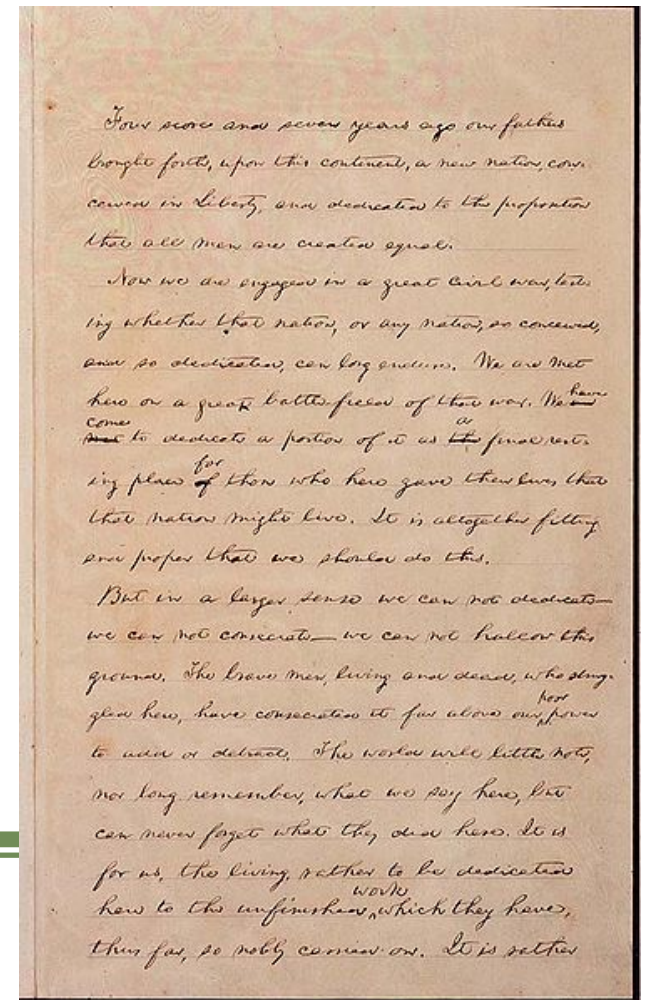 Four score and seven years ago our fathers
brought forth, upon this continent, a new nation, con-
ceived in Liberty, and dedicated to the proposition
that all men are created equal.
Now we are engaged in a great civil war, test-
ing whether that nation, or any nation, so conceived,
and so dedicated, can long endure. We are met
here on a great battle-field of that war. We have
come
met to dedicate a portion of it as a the final rest-
for
ing place of those who here gave their lives that
that nation might live. It is altogether fitting
and proper that we should do this.
But in a larger sense we can not dedicate—
we can not consecrate— we can not hallow this
ground. The brave men, living and dead, who strug-
poor
gled here, have consecrated it far above our power
to add or detract. The world will little note,
nor long remember, what we say here, but
can never forget what they did here. It is
for us, the living, rather to be dedicated
work
here to the unfinished which they have,
thus far, so nobly carried on. It is rather